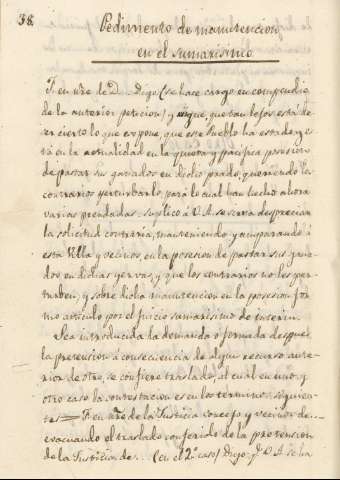 38.
Pedimento de manutencion
en el sumarisimo
F. en nre de D... Digo (se hace cargo en compendio
de la anterior peticion) y sigue, que tan lejos está de
ser cierto lo que expone, que este Pueblo ha estado y es
tá en la actualidad en la quieta y pacifica posesion
de pastar sus ganados en dicho prado, queriendo los
contrarios perturbarlo, para lo cual han hecho ahora
varias prendadas: suplico á V.A. se sirva despreciar
la solicitud contraria, manteniendo y amparando á
esta Villa y vecinos, en la posesion de pastar sus gana
dos en dichas yervas, y que los contrarios no les per-
turben; y sobre dicha manutencion en la posesion for
mo articulo por el juicio sumarisimo de interin.
Sea introducida la demanda o formada despues
la pretension á consecuencia de algun recurso ante-
rior de otro, se confiere traslado, al cual en uno y
otro caso la contestacion es en los terminos siguien-
tes = F. en nre de la Justicia concejo y vecinos de...
evacuando el traslado conferido de la pretension
de la Justicia de... (en el 2º caso) Digo: q.e V.A. se ha